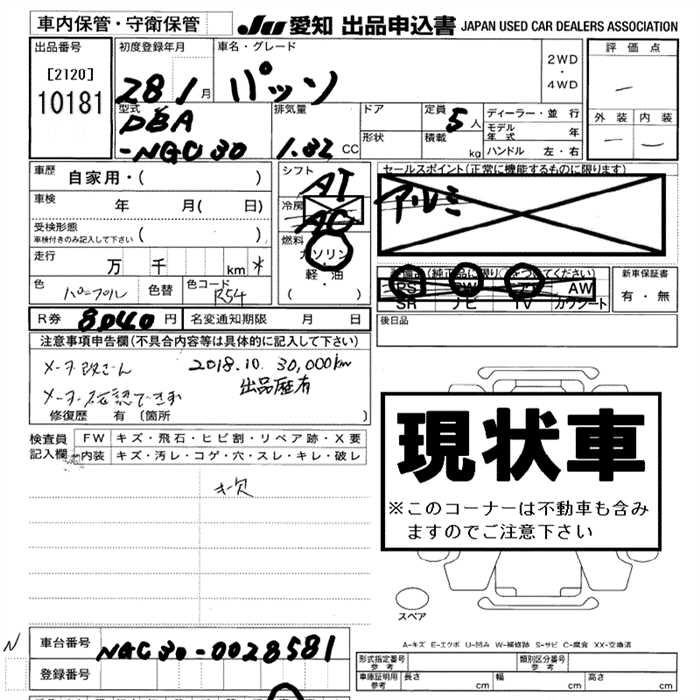 車内保管・守衛保管
JU 愛知 出品申込書 JAPAN USED CAR DEALERS ASSOCIATION
出品番号
[2120]
10181
初度登録年月
28 1月
車名・グレード
パッソ
2WD
・
4WD
評価点
—
外装 内装
— —
型式
DBA
-NGC30
排気量
1.32 CC
ドア
形状
定員
5人
積載
kg
ディーラー・並行
モデル年式 年
ハンドル 左・右
車歴
自家用・( )
車検
年 月( 日)
受検形態
車検付きのみ記入して下さい ( )
走行
万 千 km *
色
パープル
色替
色コード
R54
シフト
AT
冷房
AC
燃料
ガソリン
・
軽・油
( )
セールスポイント(正常に機能するものに限ります)
アルミ
装備品(純正品に限り)をつけてください
PS PW エアB AW
SR ナビ TV カワシート
新車保証書
有・無
後日品
R券 8040円
名変通知期限 月 日
注意事項申告欄(不具合内容等は具体的に記入して下さい)
メーター改ざん 2018.10. 30,000km
出品歴有
メーター確認できず
修復歴 有〔箇所 〕
検査員
記入欄
FW キズ・飛石・ヒビ割・リペア跡・X要
内装 キズ・汚レ・コゲ・穴・スレ・キレ・破レ
キ欠
現状車
※このコーナーは不動車も含み
ますのでご注意下さい
スペア
A-キズ E-エクボ U-凹み W-補修跡 S-サビ C-腐食 XX-交換済
N
車台番号 NGC30-0028581
登録番号
形式指定番号
参考
類別区分番号
参考
車庫証明用
参考
長さ cm 幅 cm 高さ cm